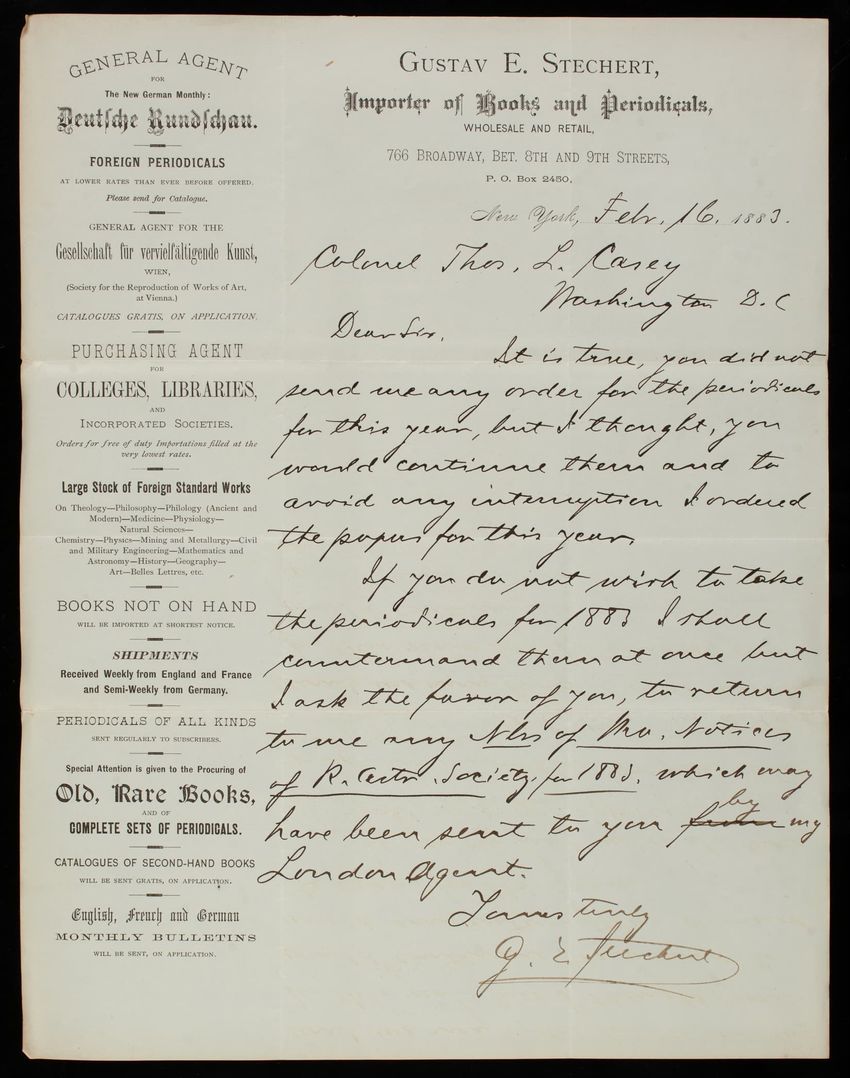 GENERAL AGENT
FOR
The New German Monthly:
Deutsche Rundschau.
FOREIGN PERIODICALS
AT LOWER RATES THAN EVER BEFORE OFFERED.
Please send for Catalogue.
GENERAL AGENT FOR THE
Gesellschaft für vervielfältigende Kunst,
WIEN,
(Society for the Reproduction of Works of Art,
at Vienna.)
CATALOGUES GRATIS, ON APPLICATION.
PURCHASING AGENT
FOR
COLLEGES, LIBRARIES,
AND
INCORPORATED SOCIETIES.
Orders for free of duty Importations filled at the
very lowest rates.
Large Stock of Foreign Standard Works
On Theology—Philosophy—Philology (Ancient and
Modern)—Medicine—Physiology—
Natural Sciences—
Chemistry—Physics—Mining and Metallurgy—Civil
and Military Engineering—Mathematics and
Astronomy—History—Geography—
Art—Belles Lettres, etc.
BOOKS NOT ON HAND
WILL BE IMPORTED AT SHORTEST NOTICE.
SHIPMENTS
Received Weekly from England and France
and Semi-Weekly from Germany.
PERIODICALS OF ALL KINDS
SENT REGULARLY TO SUBSCRIBERS.
Special Attention is given to the Procuring of
Old, Rare Books,
AND OF
COMPLETE SETS OF PERIODICALS.
CATALOGUES OF SECOND-HAND BOOKS
WILL BE SENT GRATIS, ON APPLICATION.
English, French and German
MONTHLY BULLETINS
WILL BE SENT, ON APPLICATION.
GUSTAV E. STECHERT,
Importer of Books and Periodicals,
WHOLESALE AND RETAIL,
766 BROADWAY, BET. 8TH AND 9TH STREETS,
P. O. Box 2450,
New York, Febr. 16. 1883.
Colonel Thos. L. Casey
Washington D.C
Dear Sir.
It is true, you did not
send me any order for the periodicals
for this year, but I thought, you
would continue them and to
avoid any interruption I ordered
the papers for this year.
If you do not wish to take
the periodicals for 1883 I shall
countermand them at once but
I ask the favor of you, to return
to me any Nbs of Mo. Notices
of R. Astr. Society for 1883. which may
have been sent to you from by my
London Agent.
Yours truly
G. E. Stechert